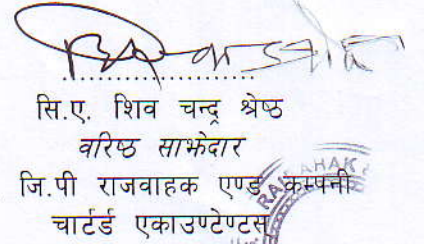 सि.ए. शिव चन्द्र श्रेष्ठ
वरिष्ठ साझेदार
जि.पी राजवाहक एण्ड कम्पनी
चार्टर्ड एकाउण्टेण्टस